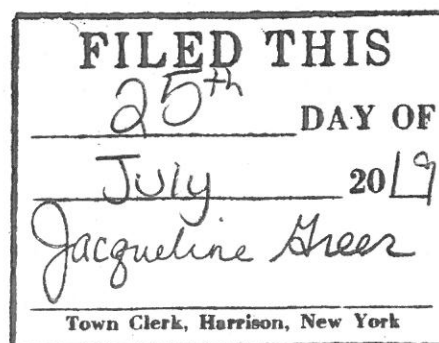 FILED THIS
25th DAY OF
July 2019
Jacqueline Greer
Town Clerk, Harrison, New York